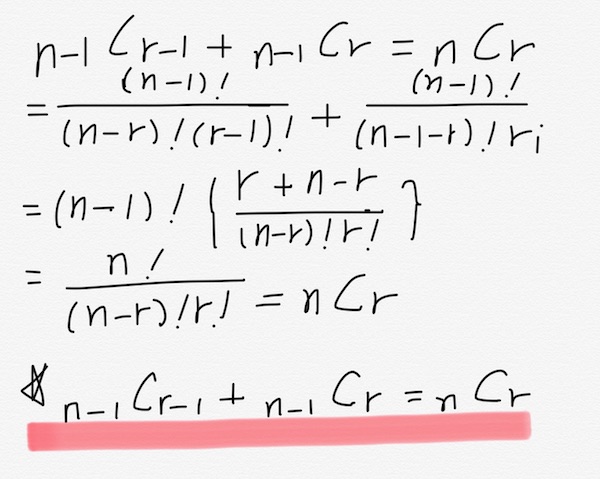 n-1 Cr-1 + n-1 Cr = n Cr
= (n-1)! / (n-r)!(r-1)! + (n-1)! / (n-1-r)!r!
= (n-1)! { r+n-r / (n-r)!r! }
= n! / (n-r)!r! = n Cr
☆ n-1 Cr-1 + n-1 Cr = n Cr